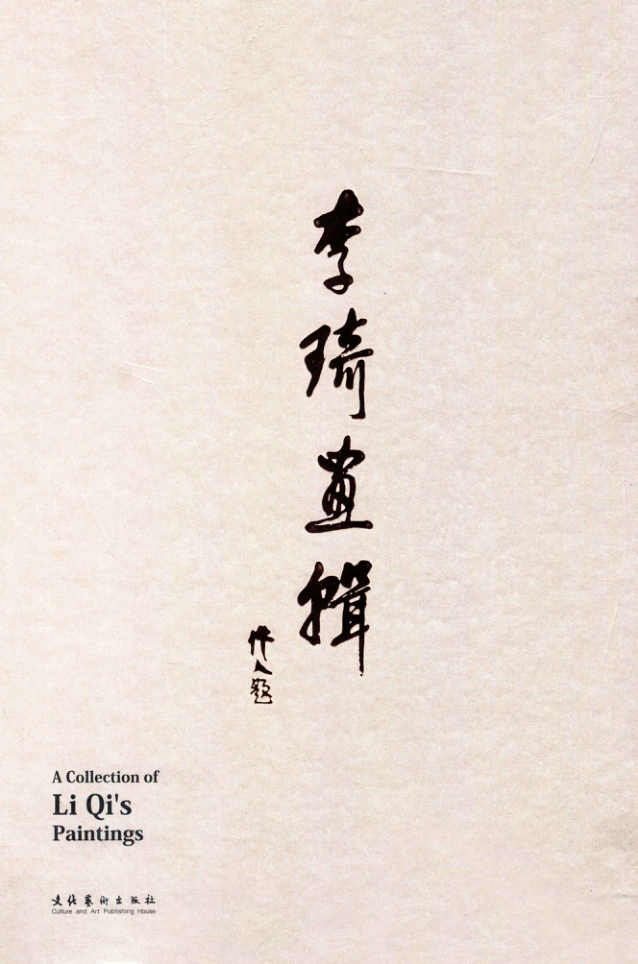 李琦畫輯
作人題
A Collection of
Li Qi's
Paintings
文化藝術出版社
Culture and Art Publishing House